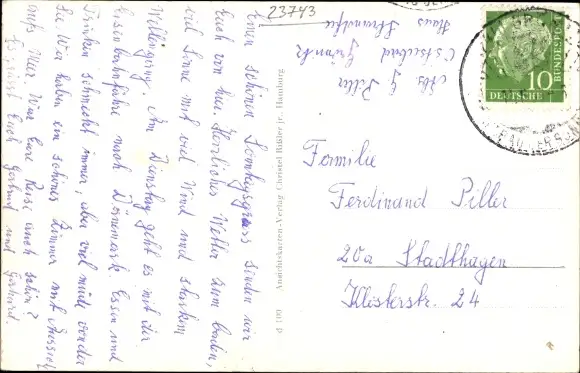 23743
Einen schönen Sonntagsgruss senden wir
Euch von hier. Herrliches Wetter zum baden,
viel Sonne mit viel Wind und starkem
Wellengang. Am Dienstag geht es mit der
Eisenbahnfähre nach Dänemark. Essen und
Trinken schmeckt immer, aber viel müde von der
See. Wir haben ein schönes Zimmer mit Aussicht
aufs Meer. War Eure Reise auch schön?
Es grüsst Euch Gertrud und Gerhard.
Abs. G. Piller
Ostseebad
Haus
DEUTSCHE BUNDESPOST
10
Ansichtskarten-Verlag Christel Rüßler jr., Hamburg
Familie
Ferdinand Piller
20a Stadthagen
Klosterstr. 24